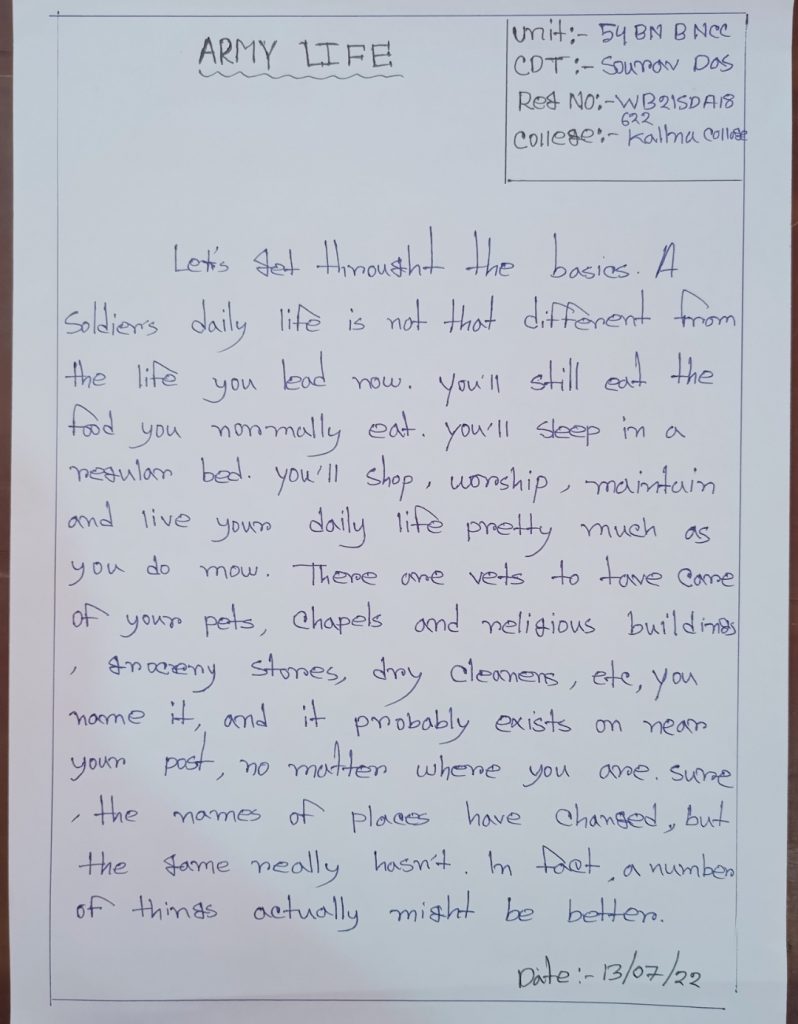 ARMY LIFE
Unit:- 54 BN B NCC
CDT:- Sourav Das
Reg No:- WB21SDA18
622
College:- Kalna College
Let's get throught the basics. A
Soldier's daily life is not that different from
the life you lead now. you'll still eat the
food you normally eat. you'll sleep in a
regular bed. you'll shop, worship, maintain
and live your daily life pretty much as
you do mow. There are vets to tave care
of your pets, chapels and religious buildings
, grocery stores, dry cleaners, etc, you
name it, and it probably exists on near
your post, no matter where you are. sure
, the names of places have changed, but
the game really hasn't. In fact, a number
of things actually might be better.
Date:- 13/07/22